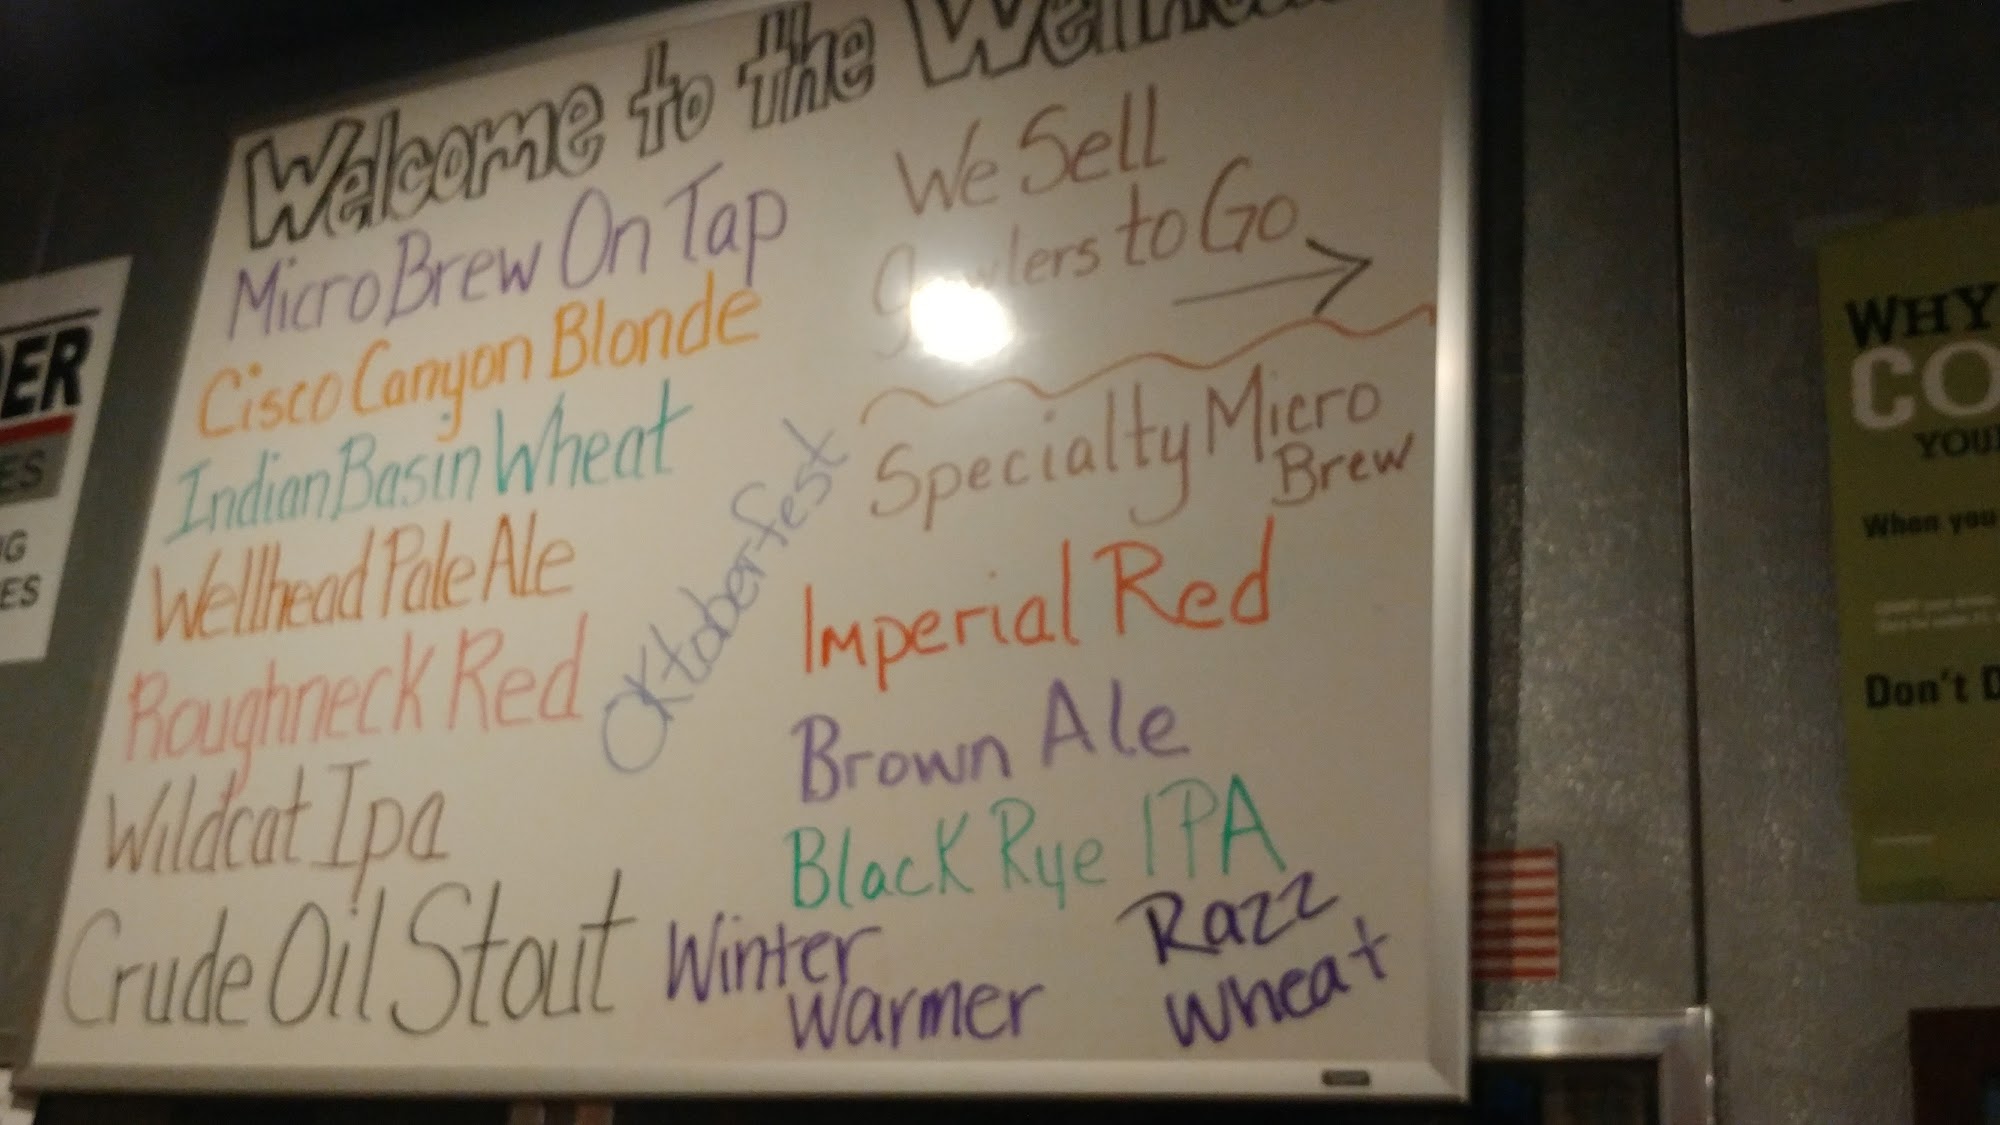 Welcome to the
Micro Brew On Tap
Cisco Canyon Blonde
Indian Basin Wheat
Wellhead Pale Ale
Roughneck Red
Wildcat Ipa
Crude Oil Stout
Oktoberfest
We Sell
to Go
Specialty Micro
Brew
Imperial Red
Brown Ale
Black Rye IPA
Winter
Warmer
Razz
Wheat
ER
ES
G
ES
WHY
CO
YOU
When you
Don't D